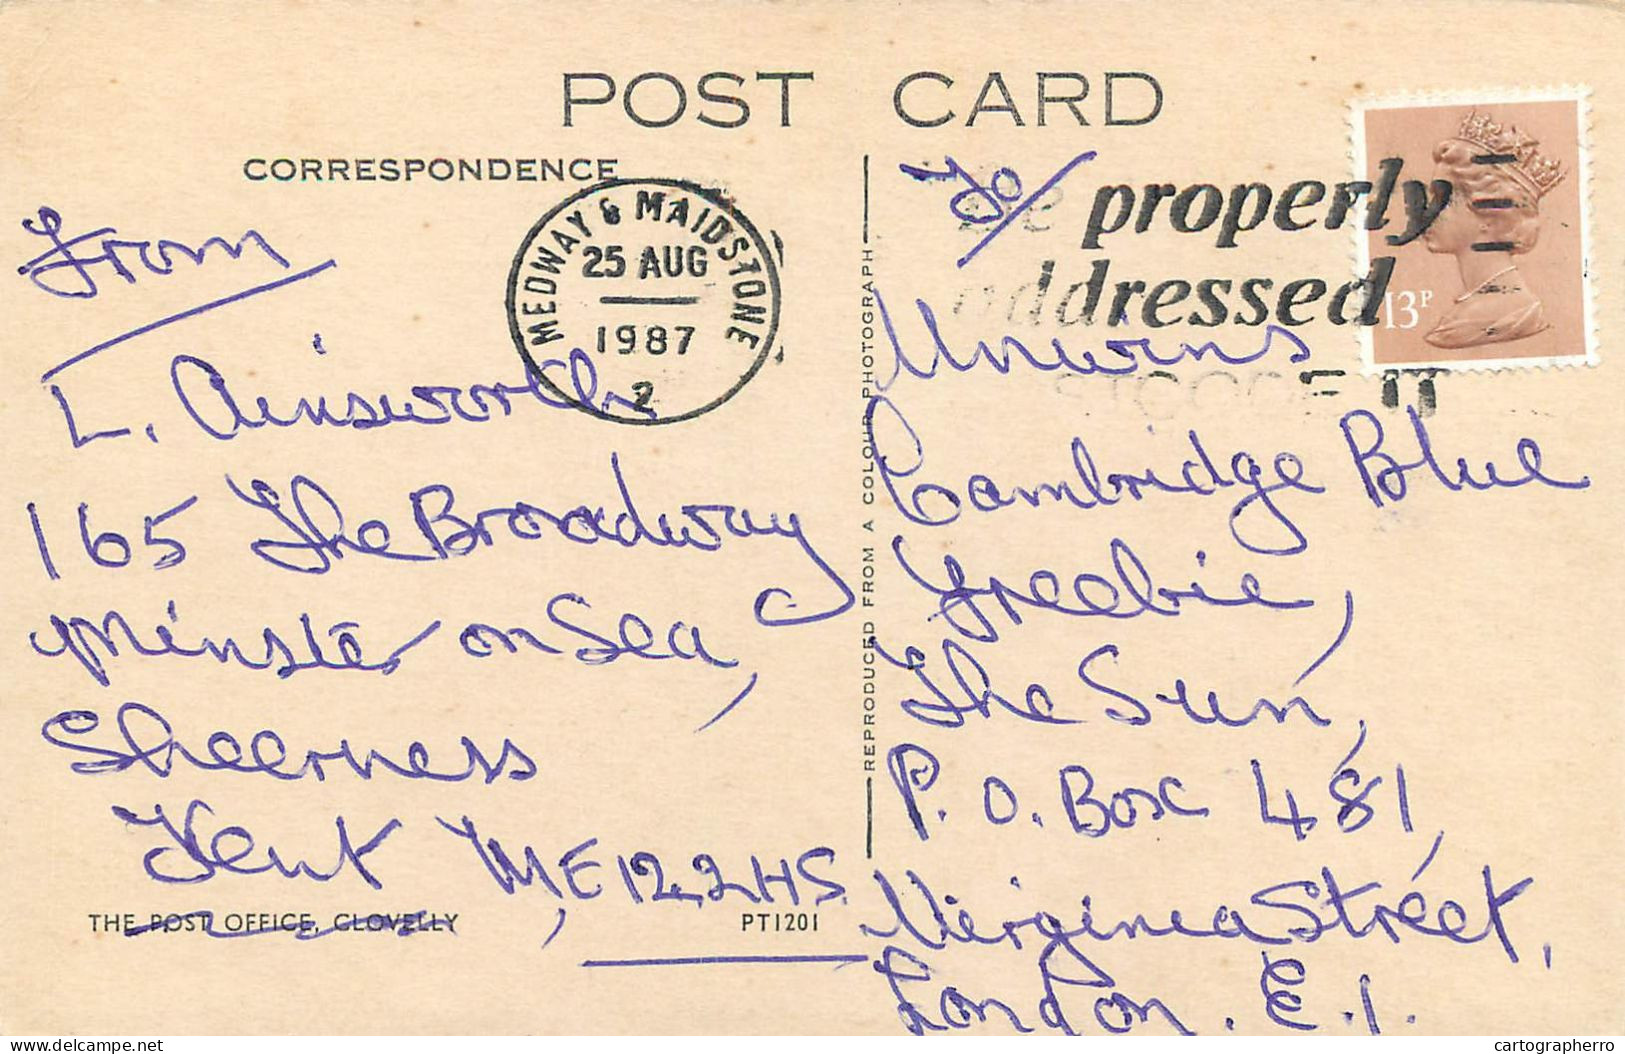 POST CARD
CORRESPONDENCE
MEDWAY & MAIDSTONE
25 AUG
1987
2
Be properly
addressed
13P
From
L. Ainsworth
165 The Broadway
Minster on Sea,
Sheerness
Kent ME12 2HS
THE POST OFFICE, CLOVELLY
PT1201
REPRODUCED FROM A COLOUR PHOTOGRAPH
To/
Unwins
Cambridge Blue
Freebie,
The Sun,
P.O. Box 481,
Virginia Street,
London. E.1.
delcampe.net
cartographerro